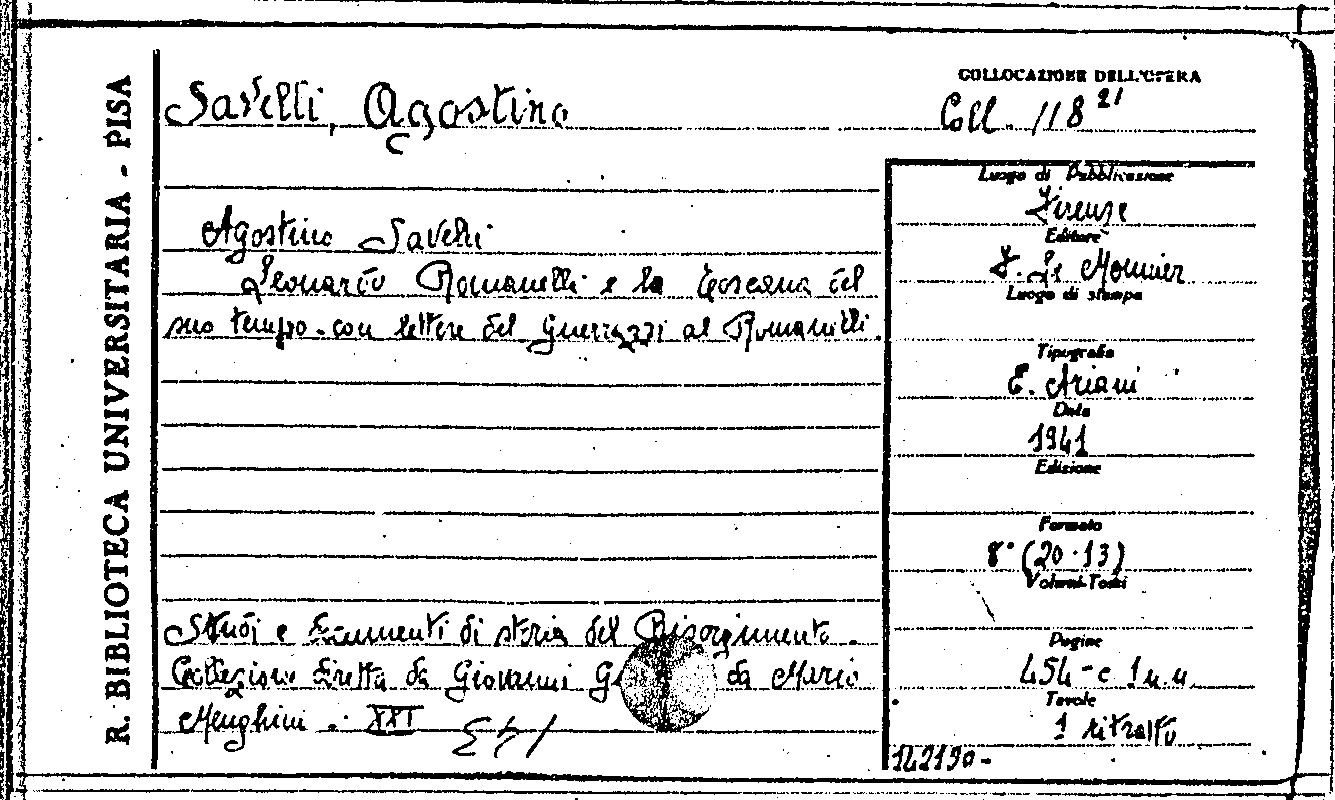 R. BIBLIOTECA UNIVERSITARIA - PISA
Savelli, Agostino
COLLOCAZIONE DELL'OPERA
Coll. 118 21
Agostino Savelli
Leonardo Romanelli e la Toscana del
suo tempo - con lettere del Guerrazzi al Romanelli.
Studi e documenti di storia del Risorgimento -
Collezione diretta da Giovanni da Mario
Menghini - XXI
Luogo di Pubblicazione
Firenze
Editore
F. Le Monnier
Luogo di stampa
Tipografia
E. Ariani
Data
1941
Edizione
Formato
8° (20·13)
Volumi-Tomi
Pagine
454 - c 1 n.n.
Tavole
1 ritratto
142190 -